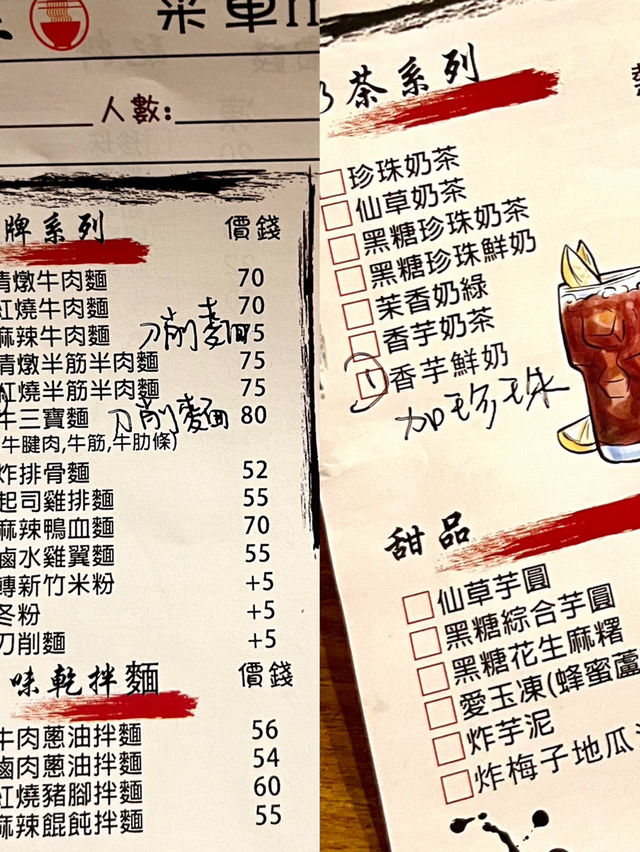 菜單
人數:
牌系列 價錢
清燉牛肉麵 70
紅燒牛肉麵 70
麻辣牛肉麵 刀削麵 75
清燉半筋半肉麵 75
紅燒半筋半肉麵 75
牛三寶麵 刀削麵 80
牛腱肉,牛筋,牛肋條)
炸排骨麵 52
起司雞排麵 55
麻辣鴨血麵 70
滷水雞翼麵 55
轉新竹米粉 +5
冬粉 +5
刀削麵 +5
味乾拌麵 價錢
牛肉蔥油拌麵 56
滷肉蔥油拌麵 54
紅燒豬腳拌麵 60
麻辣餛飩拌麵 55
奶茶系列
珍珠奶茶
仙草奶茶
黑糖珍珠奶茶
黑糖珍珠鮮奶
茉香奶綠
香芋奶茶
1 香芋鮮奶
加珍珠
甜品
仙草芋圓
黑糖綜合芋圓
黑糖花生麻糬
愛玉凍(蜂蜜蘆
炸芋泥
炸梅子地瓜